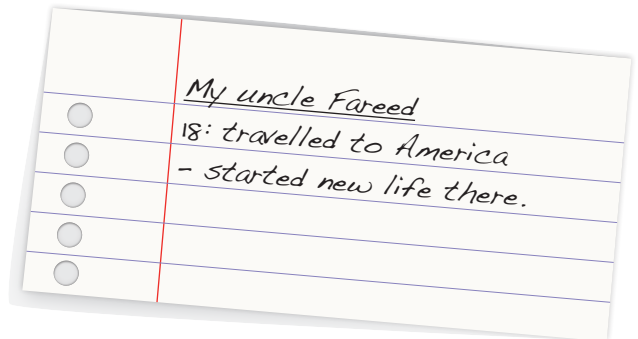 My uncle Fareed
18: travelled to America
- started new life there.